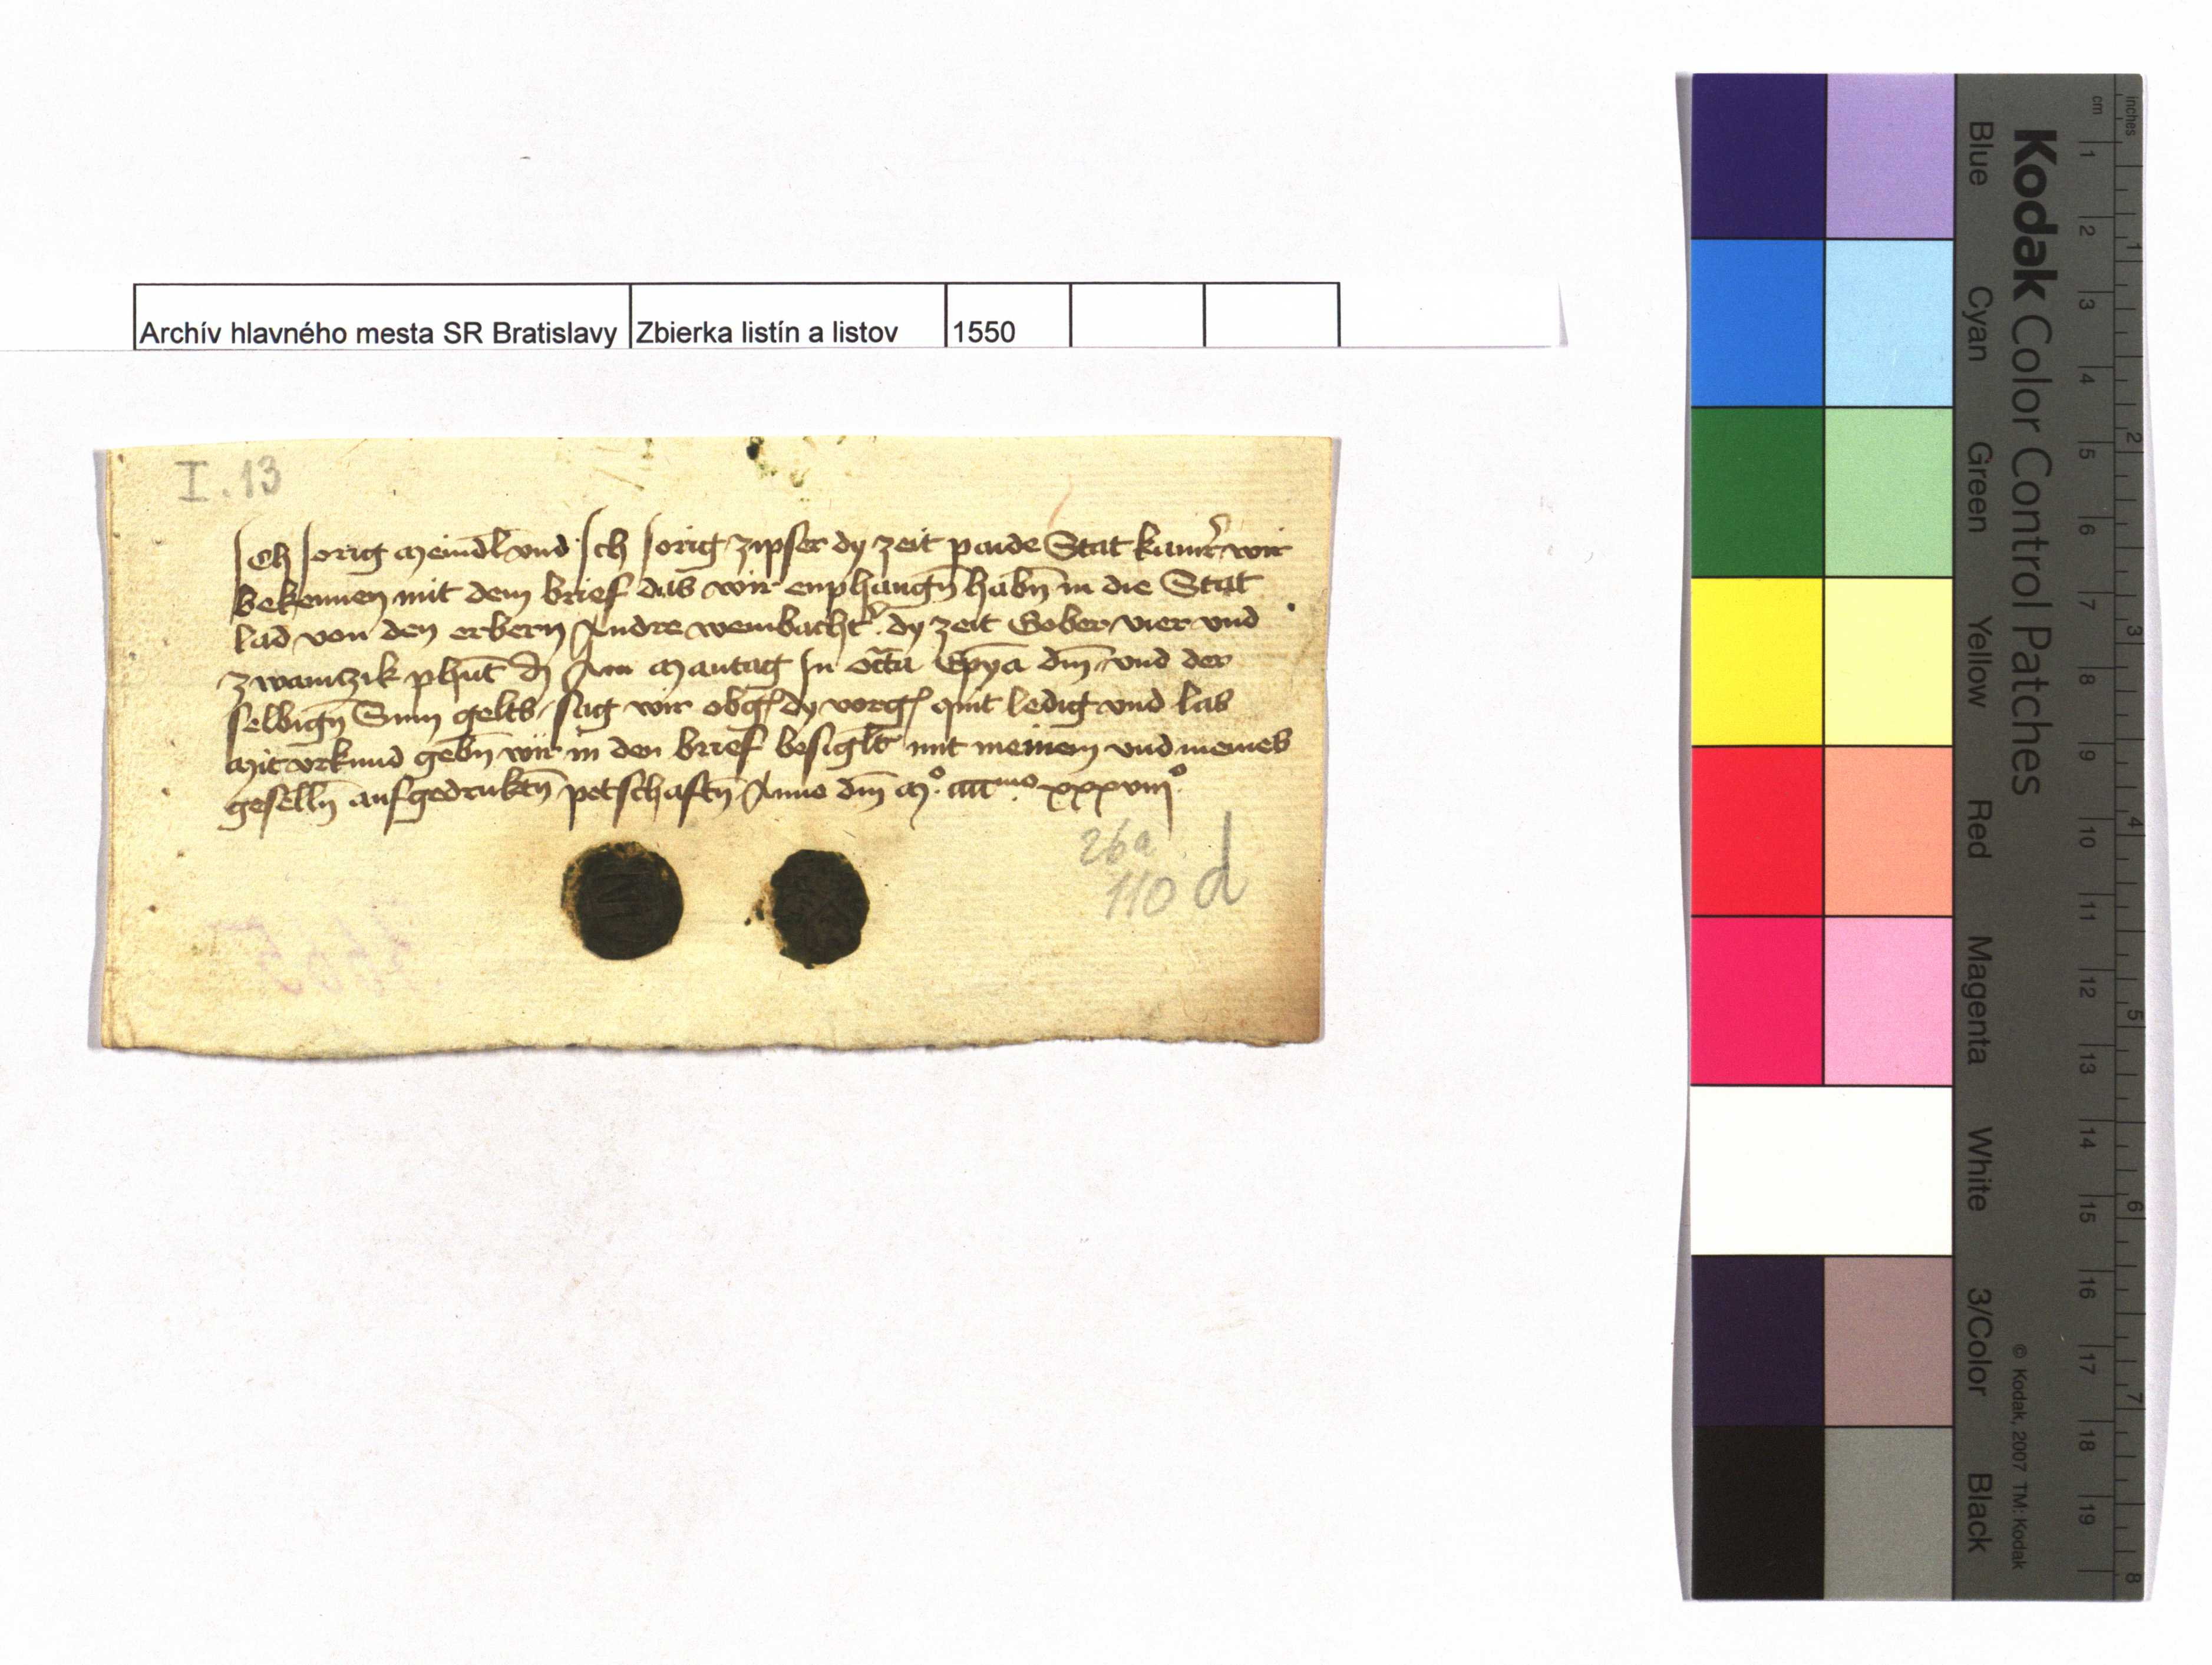 Archív hlavného mesta SR Bratislavy Zbierka listín a listov 1550
I. 13
Ich Jorig meindl vnd Ich Jorig zipser dy zeit paide Stat kamr̄ wir
Bekennen mit dem brief das wir enphangn̄ habn̄ in die Stat
lad von den erbern Andre weinbachtr̄ dy zeit Gober vier vnd
zwanczik phūt ₰ Am Mantag In octā Epyā dm̄ vnd der
selbign̄ Sum gelts sag wir obgen̄ dy vorgen̄ quit ledig vnd las
Mit vrkund gebn̄ wir in den brief besiglt mit meinem vnd meines
geselln̄ aufgedruktn̄ petschaftn̄ Anno dm̄ mº. ccccmo xxxviiiº
26a
110 d
Kodak Color Control Patches
Blue Cyan Green Yellow Red Magenta White 3/Color Black
© Kodak, 2007 TM: Kodak
cm 1 2 3 4 5 6 7 8 9 10 11 12 13 14 15 16 17 18 19
inches 1 2 3 4 5 6 7 8